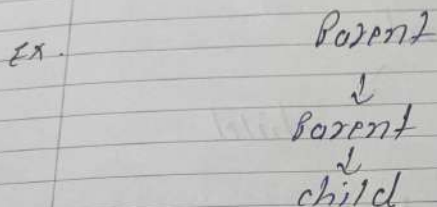 Ex.
Parent
↓
Parent
↓
child